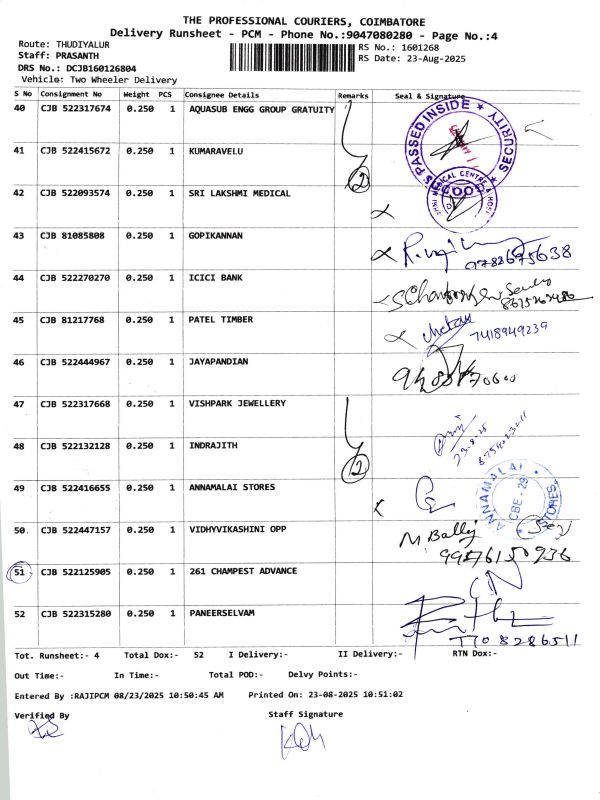 THE PROFESSIONAL COURIERS, COIMBATORE
Delivery Runsheet - PCM - Phone No.:9047080280 - Page No.:4
Route: THUDIYALUR
RS No.: 1601268
Staff: PRASANTH
RS Date: 23-Aug-2025
DRS No.: DCJB160126804
Vehicle: Two Wheeler Delivery
S No Consignment No Weight PCS Consignee Details Remarks Seal & Signature
40 CJB 522317674 0.250 1 AQUASUB ENGG GROUP GRATUITY
PASSED INSIDE SECURITY
41 CJB 522415672 0.250 1 KUMARAVELU
2
42 CJB 522093574 0.250 1 SRI LAKSHMI MEDICAL
MEDICAL CENTRE &
43 CJB 81085808 0.250 1 GOPIKANNAN
9788675638
44 CJB 522270270 0.250 1 ICICI BANK
45 CJB 81217768 0.250 1 PATEL TIMBER
7418949239
46 CJB 522444967 0.250 1 JAYAPANDIAN
47 CJB 522317668 0.250 1 VISHPARK JEWELLERY
23.8.25
48 CJB 522132128 0.250 1 INDRAJITH
2
49 CJB 522416655 0.250 1 ANNAMALAI STORES
ANNAMALAI STORES
CBE-29
50 CJB 522447157 0.250 1 VIDHYVIKASHINI OPP
M Bally
51 CJB 522125905 0.250 1 261 CHAMPEST ADVANCE
52 CJB 522315280 0.250 1 PANEERSELVAM
7708286511
Tot. Runsheet:- 4 Total Dox:- 52 I Delivery:- II Delivery:- RTN Dox:-
Out Time:- In Time:- Total POD:- Delvy Points:-
Entered By :RAJIPCM 08/23/2025 10:50:45 AM Printed On: 23-08-2025 10:51:02
Verified By Staff Signature